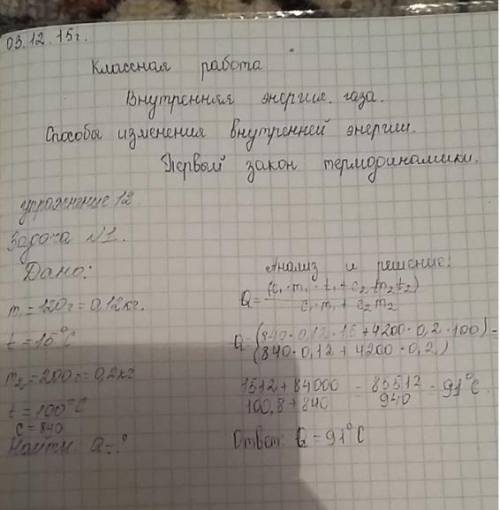 03.12.15г.
Классная работа
Внутренняя энергия газа.
Способы изменения внутренней энергии.
Первый закон термодинамики.
упражнение 12
Задача №1.
Дано:
m₁=120г=0,12кг.
t=15°C
m₂=200г=0,2кг
t=100°C
c=840
Найти: Q=?
Анализ и решение:
Q=(c₁·m₁·t₁+c₂·m₂t₂)
c₁·m₁+c₂m₂
Q=(840·0,12·15+4200·0,2·100)=
(840·0,12+4200·0,2)
1512+84000 = 85512 = 91°C
100,8+840 940
Ответ: Q=91°C